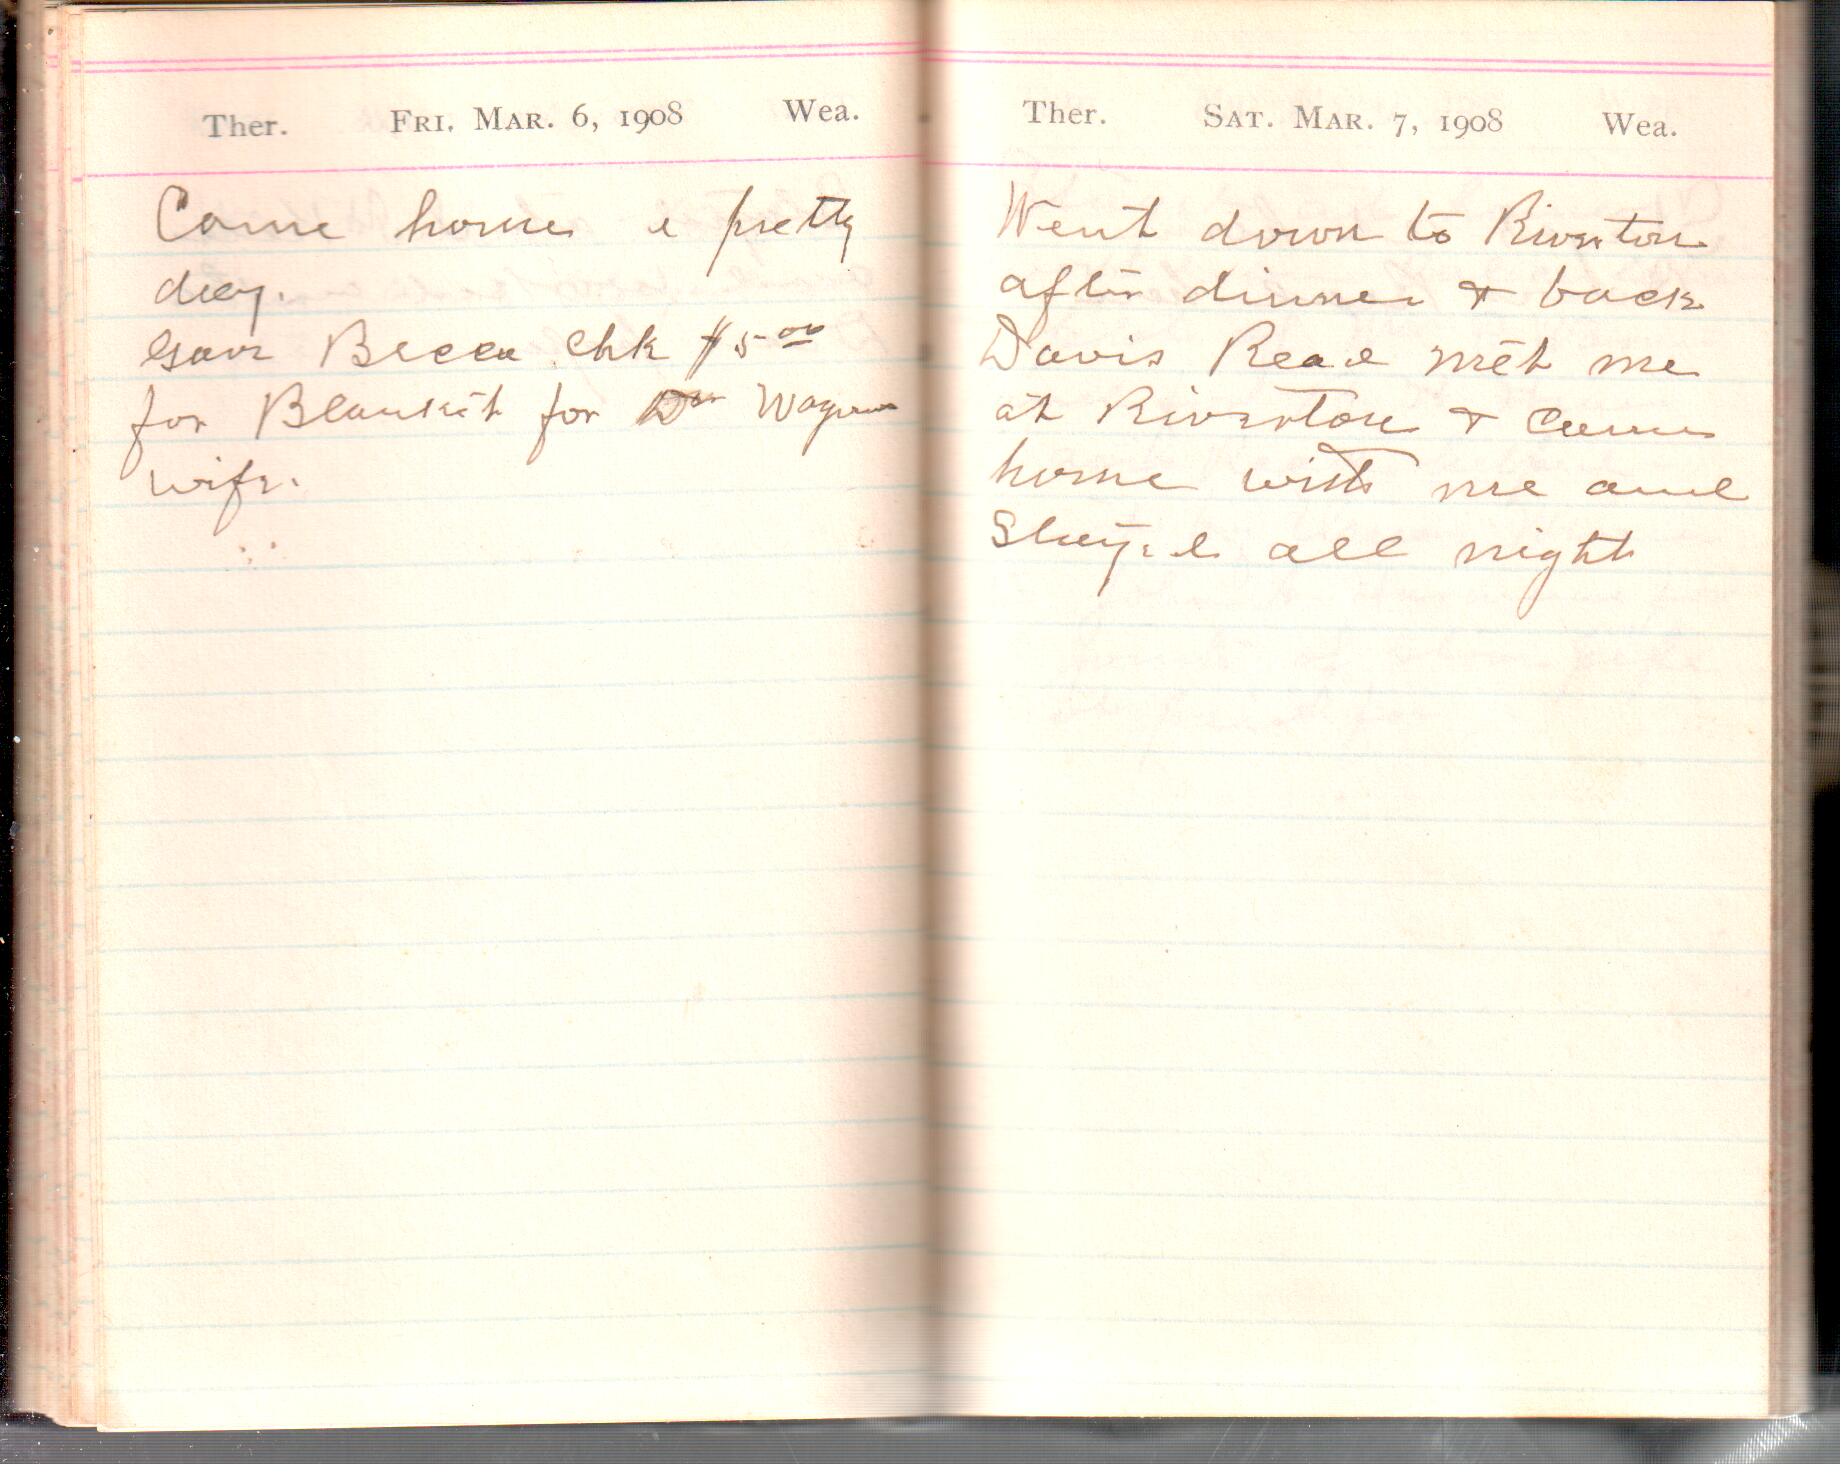 Ther. Fri. Mar. 6, 1908 Wea.
Came home a pretty
day.
Gave Becca chk $5.00
for Blanket for Wagner
wife.
Ther. Sat. Mar. 7, 1908 Wea.
Went down to Riverton
after dinner & back
Davis Read met me
at Riverton & came
home with me and
Stayed all night